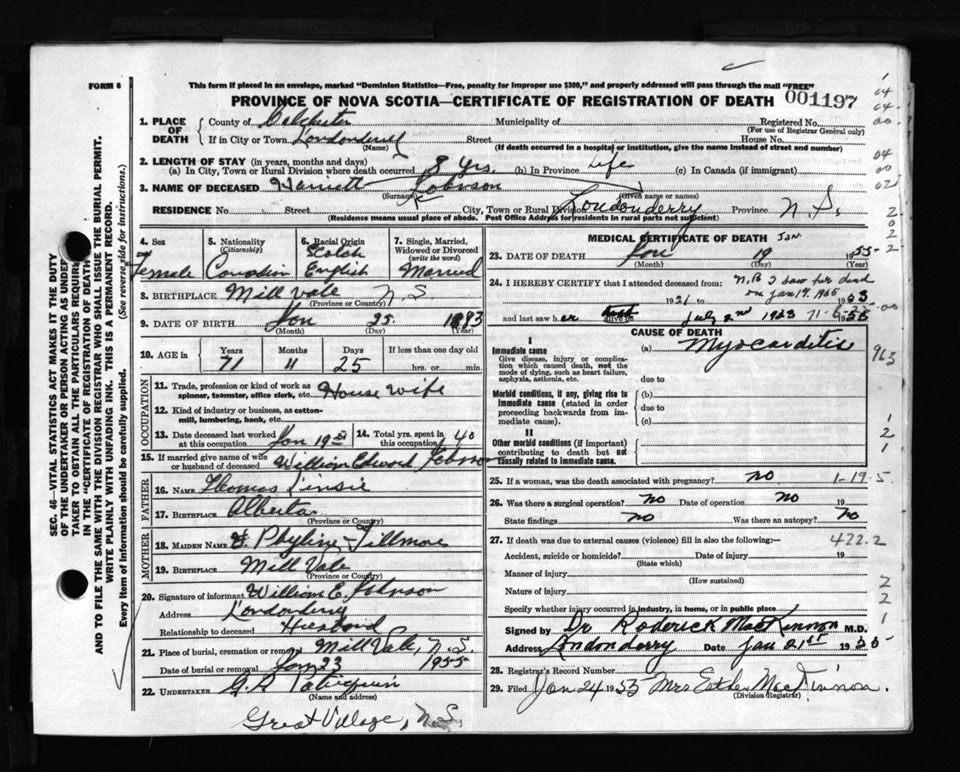 FORM 6
This form if placed in an envelope, marked "Dominion Statistics—Free, penalty for improper use $300," and properly addressed will pass through the mail "FREE"
PROVINCE OF NOVA SCOTIA—CERTIFICATE OF REGISTRATION OF DEATH 001197
1. PLACE OF DEATH
County of Colchester Municipality of Registered No.
(For use of Registrar General only)
If in City or Town Londonderry Street House No.
(Name) (If death occurred in a hospital or institution, give the name instead of street and number)
2. LENGTH OF STAY (in years, months and days)
(a) In City, Town or Rural Division where death occurred 8 yrs. (b) In Province Life (c) In Canada (if immigrant)
3. NAME OF DECEASED Harriett Johnson
(Surname) (Given name or names)
RESIDENCE No. Street City, Town or Rural Division Londonderry Province N.S.
(Residence means usual place of abode. Post Office Address for residents in rural parts not sufficient)
4. Sex Female
5. Nationality (Citizenship) Canadian
6. Racial Origin Scotch English
7. Single, Married, Widowed or Divorced (write the word) Married
8. BIRTHPLACE Mill Vale N.S
(Province or Country)
9. DATE OF BIRTH Jan 25 1883
(Month) (Day) (Year)
10. AGE in Years Months Days If less than one day old
71 11 25 hrs. or min.
OCCUPATION
11. Trade, profession or kind of work as spinner, teamster, office clerk, etc. House wife
12. Kind of industry or business, as cotton-mill, lumbering, bank, etc.
13. Date deceased last worked at this occupation Jan 19
14. Total yrs. spent in this occupation 40
15. If married give name of wife or husband of deceased William Edward Johnson
FATHER
16. NAME Thomas
17. BIRTHPLACE Alberta
(Province or Country)
MOTHER
18. MAIDEN NAME Tillmore
19. BIRTHPLACE Mill Vale
(Province or Country)
20. Signature of informant William E. Johnson
Address Londonderry
Relationship to deceased Husband
21. Place of burial, cremation or removal Mill Vale, N.S.
Date of burial or removal Jan 23 1955
22. UNDERTAKER G.R
(Name and address)
Great Village, N.S.
MEDICAL CERTIFICATE OF DEATH Jan.
23. DATE OF DEATH Jan 19 1955
(Month) (Day) (Year)
24. I HEREBY CERTIFY that I attended deceased from: N.B I saw her dead
on Jan 19. 1955
1921 to 1953
and last saw her alive on July 2nd 1953
CAUSE OF DEATH
I
Immediate cause
Give disease, injury or complication which caused death, not the mode of dying, such as heart failure, asphyxia, asthenia, etc.
(a) Myocarditis 963
due to
Morbid conditions, if any, giving rise to immediate cause (stated in order proceeding backwards from immediate cause).
(b)
due to
(c)
II
Other morbid conditions (if important) contributing to death but not causally related to immediate cause.
25. If a woman, was the death associated with pregnancy? no 1-19-5
26. Was there a surgical operation? no Date of operation no 19
State findings no Was there an autopsy? no
27. If death was due to external causes (violence) fill in also the following:— 422.2
Accident, suicide or homicide? Date of injury 19
(State which)
Manner of injury
(How sustained)
Nature of injury
Specify whether injury occurred in industry, in home, or in public place
Signed by Dr Roderick MacKinnon M.D.
Address Londonderry Date Jan 21st 1955
28. Registrar's Record Number
29. Filed Jan 24 1955 Mrs Esther MacKinnon.
(Division Registrar)
SEC. 46—VITAL STATISTICS ACT MAKES IT THE DUTY
OF THE UNDERTAKER OR PERSON ACTING AS UNDER-
TAKER TO OBTAIN ALL THE PARTICULARS REQUIRED
IN THE "CERTIFICATE OF REGISTRATION OF DEATH"
AND TO FILE THE SAME WITH THE DIVISION REGISTRAR WHO SHALL ISSUE THE BURIAL PERMIT.
WRITE PLAINLY WITH UNFADING INK. THIS IS A PERMANENT RECORD.
Every item of information should be carefully supplied. (See reverse side for instructions.)